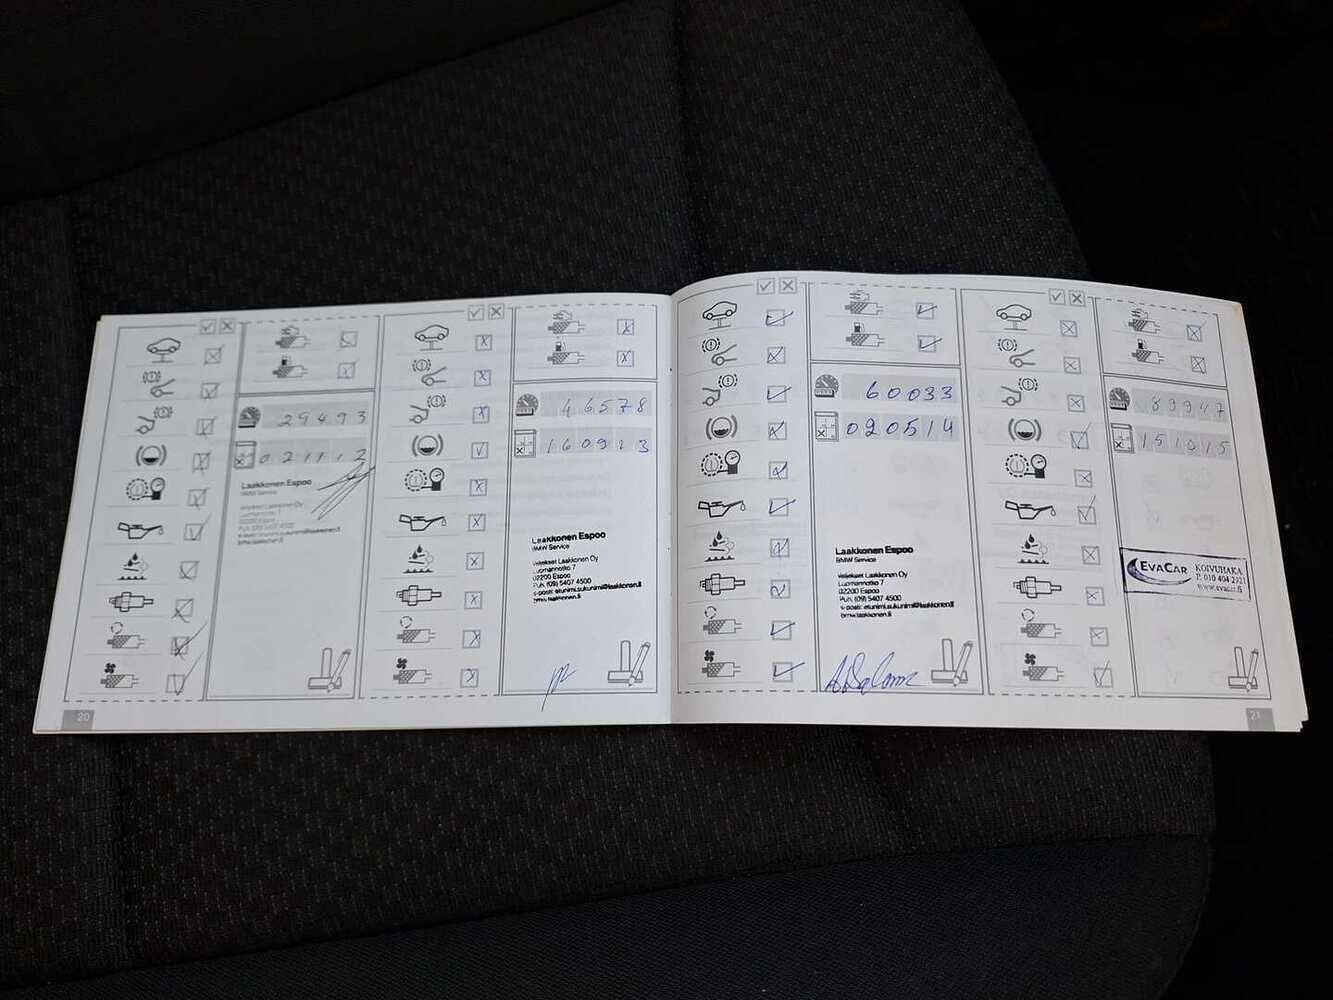 29493
021112
Laakkonen Espoo
BMW Service
Veljekset Laakkonen Oy
Luomannotko 7
02200 Espoo
Puh. (09) 5407 4500
bmw.laakkonen.fi
20
46578
160913
Laakkonen Espoo
BMW Service
Veljekset Laakkonen Oy
Luomannotko 7
02200 Espoo
Puh. (09) 5407 4500
s-posti: etunimi.sukunimi@laakkonen.fi
bmw.laakkonen.fi
60033
020514
Laakkonen Espoo
BMW Service
Veljekset Laakkonen Oy
Luomannotko 7
02200 Espoo
Puh. (09) 5407 4500
s-posti: etunimi.sukunimi@laakkonen.fi
bmw.laakkonen.fi
151015
EVACAR KOIVUHAKA
P. 010 404 2921
www.evacar.fi
21